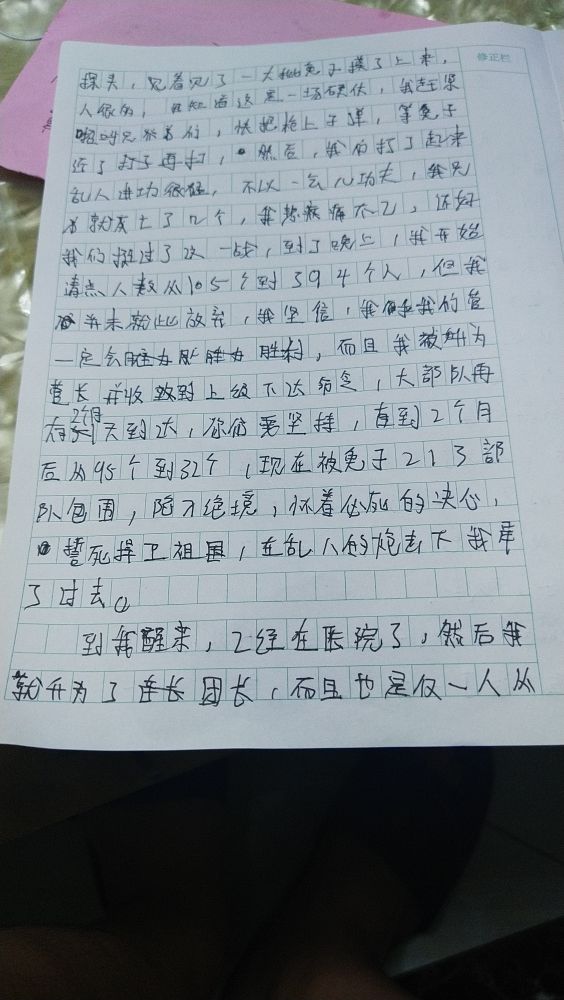 修正栏
探头，只看见了一大批兔子摸了上来，
人很多，我知道这是一场硬仗，我赶紧
兄弟们，快把枪上子弹，等兔子
近了打了再打，然后，我们打了起来
乱人进功很强，不以一会儿功夫，我兄
就灰土了几个，我悲痰痛不乙，还好
我们挺过了这一战，到了晚上，我开始
清点人数从105个到394个人，但我
并未就此放弃，我坚信，我们的营
一定会胜利，而且我被升为
营长并收到上级下达命令，大部队再
有2个月天到达，你们要坚持，直到2个月
后从95个到32个，现在被兔子213部
队包围，陷入绝境，怀着必死的决心，
誓死捍卫祖国，在乱人的炮击下我晕
了过去。
到我醒来，乙经在医院了，然后我
就升为了连长团长，而且也是仅一人从